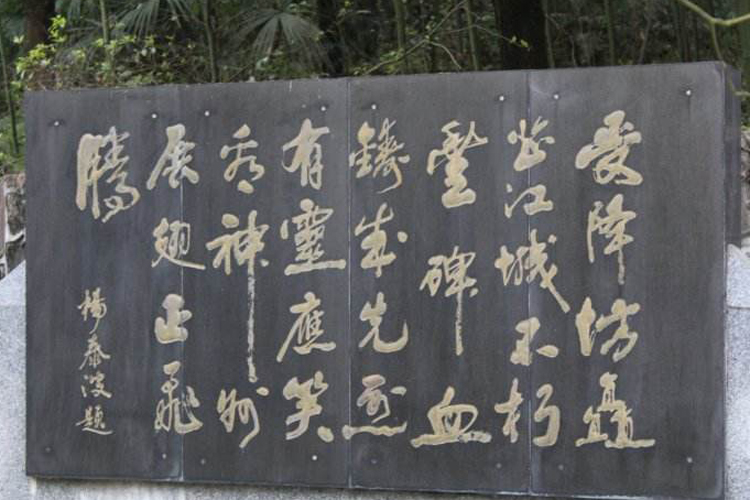 受降坊矗
芷江城不朽
豐碑血
鑄成先烈
有靈應笑
看神州
展翅正飛
騰
楊泰波題